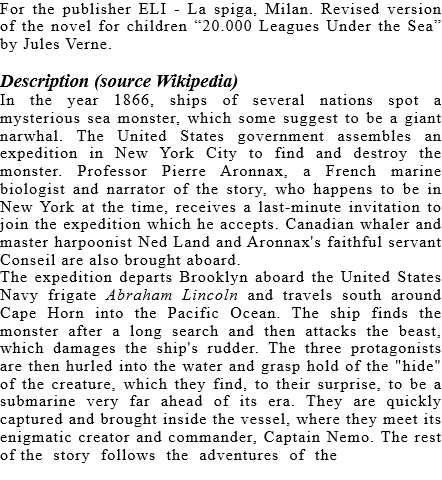 For the publisher ELI - La spiga, Milan. Revised version
of the novel for children “20.000 Leagues Under the Sea”
by Jules Verne.
Description (source Wikipedia)
In the year 1866, ships of several nations spot a
mysterious sea monster, which some suggest to be a giant
narwhal. The United States government assembles an
expedition in New York City to find and destroy the
monster. Professor Pierre Aronnax, a French marine
biologist and narrator of the story, who happens to be in
New York at the time, receives a last-minute invitation to
join the expedition which he accepts. Canadian whaler and
master harpoonist Ned Land and Aronnax's faithful servant
Conseil are also brought aboard.
The expedition departs Brooklyn aboard the United States
Navy frigate Abraham Lincoln and travels south around
Cape Horn into the Pacific Ocean. The ship finds the
monster after a long search and then attacks the beast,
which damages the ship's rudder. The three protagonists
are then hurled into the water and grasp hold of the "hide"
of the creature, which they find, to their surprise, to be a
submarine very far ahead of its era. They are quickly
captured and brought inside the vessel, where they meet its
enigmatic creator and commander, Captain Nemo. The rest
of the story follows the adventures of the